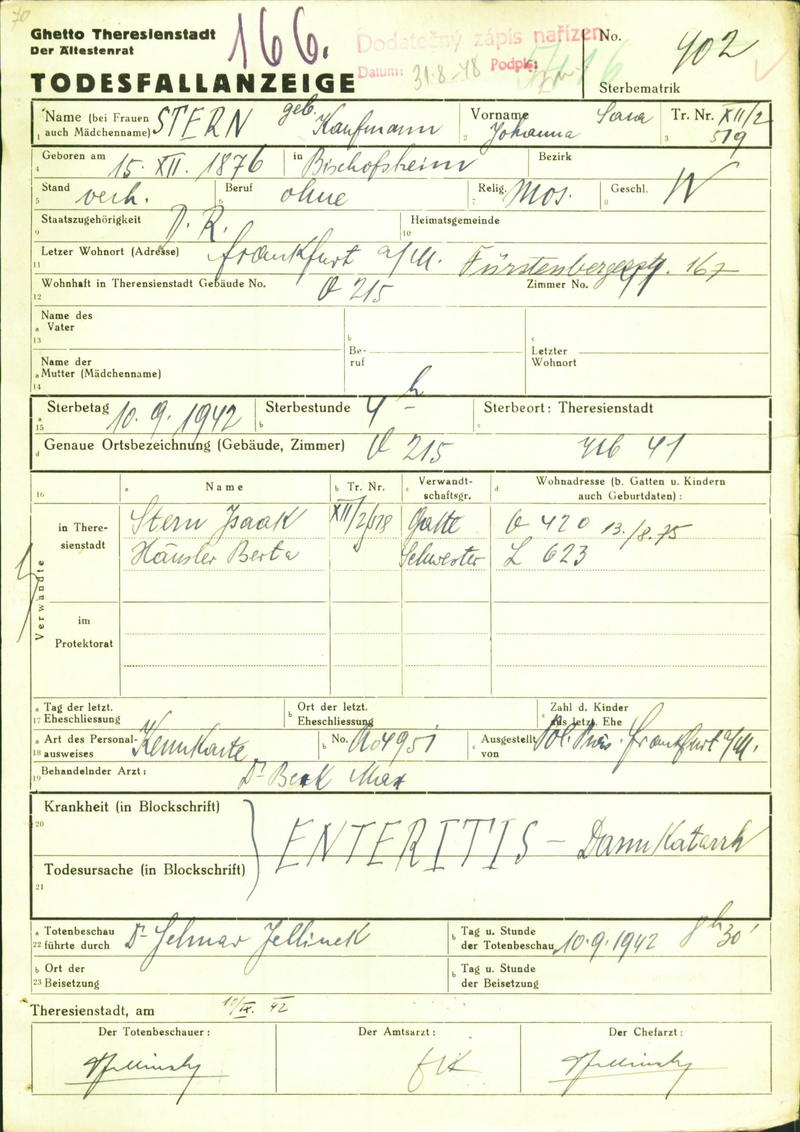 70
Ghetto Theresienstadt
Der Ältestenrat
166.
Dodatečný zápis nařízen
Datum: 31.8-48 Podpis:
No. 402
Sterbematrik
TODESFALLANZEIGE
1 Name (bei Frauen auch Mädchenname) STERN geb. Kaufmann
2 Vorname Johanna Sara
3 Tr. Nr. XII/2 519
4 Geboren am 15. XII. 1876 in Bischofsheim Bezirk
5 Stand verh. 6 Beruf ohne 7 Relig. Mos. 8 Geschl. W
9 Staatszugehörigkeit D. R. 10 Heimatsgemeinde
11 Letzer Wohnort (Adresse) Frankfurt a/M. Fürstenbergerstr. 167
12 Wohnhaft in Therensienstadt Gebäude No. Q 215 Zimmer No.
13 a Name des Vater
14 a Name der Mutter (Mädchenname)
b Be-ruf
c Letzter Wohnort
15 a Sterbetag 10. 9. 1942 b Sterbestunde 4 h - c Sterbeort: Theresienstadt
d Genaue Ortsbezeichnung (Gebäude, Zimmer) Q 215 41
16 a Name b Tr. Nr. c Verwandt-schaftsgr. d Wohnadresse (b. Gatten u. Kindern auch Geburtdaten):
Verwandte
in There-sienstadt
Stern Isaak XII/2/518 Gatte Q 420 13./8.75
Häusler Berta Schwester L 623
im Protektorat
17 a Tag der letzt. Eheschliessung b Ort der letzt. Eheschliessung c Zahl d. Kinder aus letzt. Ehe
18 a Art des Personal-ausweises Kennkarte b No. A04951 c Ausgestellt von Pol. Präs. Frankfurt a/M.
19 Behandelnder Arzt: Dr. Max
20 Krankheit (in Blockschrift)
21 Todesursache (in Blockschrift)
ENTERITIS - Darmkatarrh
22 a Totenbeschau führte durch Dr. Selmar Jellinek b Tag u. Stunde der Totenbeschau 10.9.1942 8h 30'
23 b Ort der Beisetzung b Tag u. Stunde der Beisetzung
Theresienstadt, am 10/IX. 42
Der Totenbeschauer: Der Amtsarzt: Der Chefarzt: